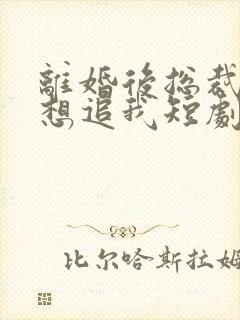 離婚後总裁
想追我短劇
比尔哈斯拉姆